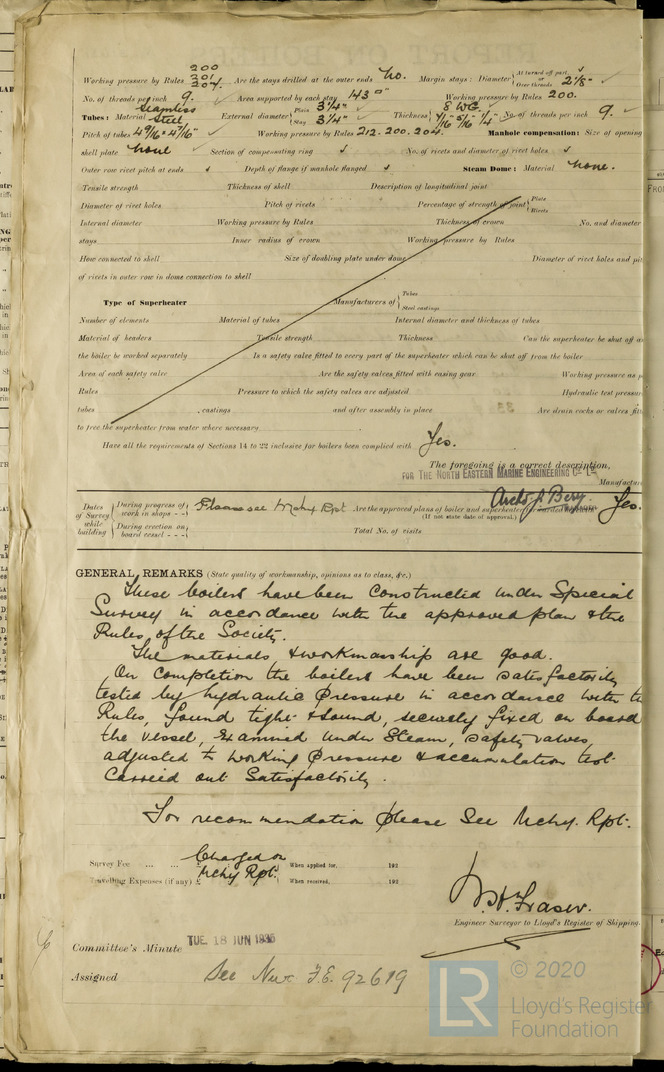 200
201
Working pressure by Rules 204. Are the stays drilled at the outer ends No. Margin stays: Diameter { At turned off part, or Over threads 2 1/8"
No. of threads per inch 9. Area supported by each stay 143 □" Working pressure by Rules 200.
Tubes: Material Seamless Steel External diameter { Plain 3 1/4" Stay 3 1/4" Thickness { 8 WG. 7/16" 5/16" 1/4" No. of threads per inch 9.
Pitch of tubes 4 9/16" × 4 7/16" Working pressure by Rules 212. 200. 204. Manhole compensation: Size of opening
shell plate None Section of compensating ring No. of rivets and diameter of rivet holes
Outer row rivet pitch at ends Depth of flange if manhole flanged Steam Dome: Material None.
Tensile strength Thickness of shell Description of longitudinal joint
Diameter of rivet holes Pitch of rivets Percentage of strength of joint { Plate Rivets
Internal diameter Working pressure by Rules Thickness of crown No. and diameter
stays Inner radius of crown Working pressure by Rules
How connected to shell Size of doubling plate under dome Diameter of rivet holes and pit
of rivets in outer row in dome connection to shell
Type of Superheater Manufacturers of { Tubes Steel castings
Number of elements Material of tubes Internal diameter and thickness of tubes
Material of headers Tensile strength Thickness Can the superheater be shut off a
the boiler be worked separately Is a safety valve fitted to every part of the superheater which can be shut off from the boiler
Area of each safety valve Are the safety valves fitted with easing gear Working pressure as p
Rules Pressure to which the safety valves are adjusted Hydraulic test pressure
tubes castings and after assembly in place Are drain cocks or valves fitt
to free the superheater from water where necessary
Have all the requirements of Sections 14 to 22 inclusive for boilers been complied with Yes.
The foregoing is a correct description,
FOR THE NORTH EASTERN MARINE ENGINEERING CO. LD.
Manufactur
Dates of Survey while building { During progress of work in shops - - Please see Mchy Rpt Are the approved plans of boiler and superheater forwarded herewith Yes.
(If not state date of approval.)
{ During erection on board vessel - - - Total No. of visits
GENERAL REMARKS (State quality of workmanship, opinions as to class, &c.)
These boilers have been constructed under Special
Survey in accordance with the approved plan & the
Rules of the Society.
The materials & workmanship are good.
On completion the boilers have been satisfactorily
tested by hydraulic pressure in accordance with th
Rules, found tight & sound, securely fixed on board
the vessel, examined under steam, safety valves
adjusted to working pressure & accumulation test
carried out satisfactorily.
For recommendation please see Mchy. Rpt.
Survey Fee ... ... Charged on When applied for, 192
Travelling Expenses (if any) £ Mchy Rpt. When received, 192
W.H. Fraser.
Engineer Surveyor to Lloyd's Register of Shipping.
Committee's Minute TUE. 18 JUN 1935
Assigned See Nwc F.E. 92619
LR © 2020
Lloyd's Register
Foundation